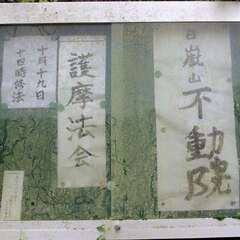 嶽山不動院
護摩法会
十月十九日
十四時修法